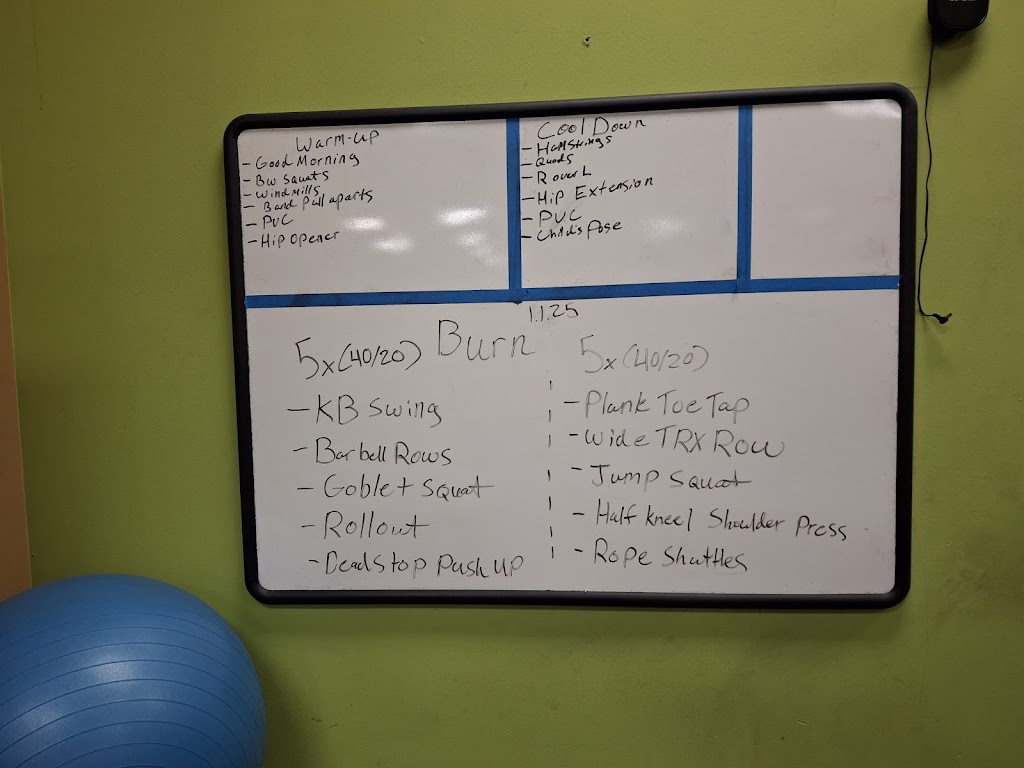 Warm-up
- Good Morning
- BW Squats
- Windmills
- Band Pull aparts
- PVC
- Hip Opener
Cool Down
- Hamstrings
- Quads
- R over L
- Hip Extension
- PVC
- Child's Pose
1.1.25
Burn
5x(40/20)
- KB Swing
- Barbell Rows
- Goblet Squat
- Rollout
- Deadstop Push Up
5x(40/20)
- Plank Toe Tap
- Wide TRX Row
- Jump Squat
- Half kneel Shoulder Press
- Rope Shuttles